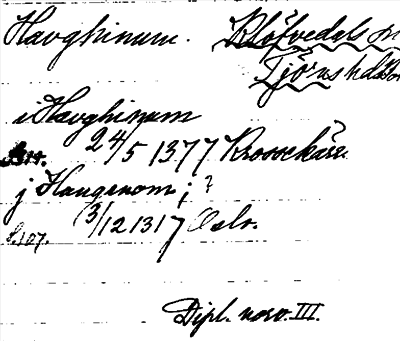 Havghinum. Klöfvedals
Tjörns hd
i Havghinum
24/5 1377 Krosskärr
j Haugenom j ?
13/12 1317 Oslo.
s. 107.
Dipl. norv. III.